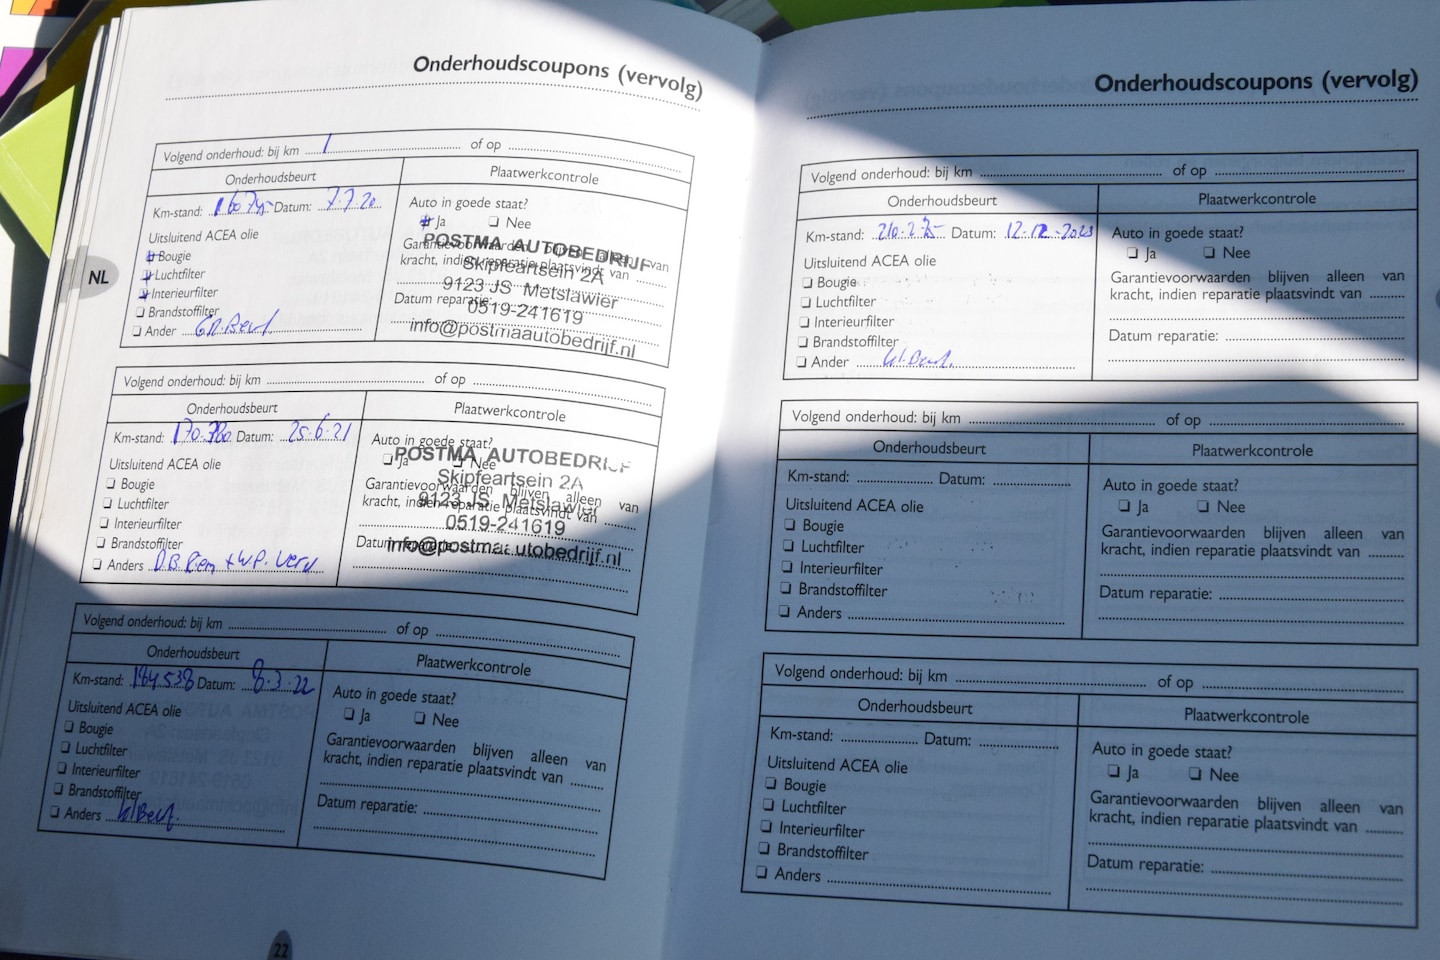 Onderhoudscoupons (vervolg)
Volgend onderhoud: bij km of op
Onderhoudsbeurt Plaatwerkcontrole
Km-stand: Datum: 7.7.20
Auto in goede staat?
Ja Nee
Uitsluitend ACEA olie
Bougie
Luchtfilter
Interieurfilter
Brandstoffilter
Ander Gr. Beurt
Garantievoorwaarden blijven alleen van
kracht, indien reparatie plaatsvindt van
Datum reparatie:
POSTMA AUTOBEDRIJF
Skipfeartsein 2A
9123 JS Metslawier
0519-241619
info@postmaautobedrijf.nl
NL
Volgend onderhoud: bij km of op
Onderhoudsbeurt Plaatwerkcontrole
Km-stand: 170.380 Datum: 25.6.21
Auto in goede staat?
Ja Nee
Uitsluitend ACEA olie
Bougie
Luchtfilter
Interieurfilter
Brandstoffilter
Anders D.B. Riem + W.P. Verv
Garantievoorwaarden blijven alleen van
kracht, indien reparatie plaatsvindt van
Datum reparatie:
POSTMA AUTOBEDRIJF
Skipfeartsein 2A
9123 JS Metslawier
0519-241619
info@postmaautobedrijf.nl
Volgend onderhoud: bij km of op
Onderhoudsbeurt Plaatwerkcontrole
Km-stand: 184.538 Datum: 8.3.22
Auto in goede staat?
Ja Nee
Uitsluitend ACEA olie
Bougie
Luchtfilter
Interieurfilter
Brandstoffilter
Anders kl Beurt.
Garantievoorwaarden blijven alleen van
kracht, indien reparatie plaatsvindt van
Datum reparatie:
22
Onderhoudscoupons (vervolg)
Volgend onderhoud: bij km of op
Onderhoudsbeurt Plaatwerkcontrole
Km-stand: 210.275 Datum: 12-12-2023
Auto in goede staat?
Ja Nee
Uitsluitend ACEA olie
Bougie
Luchtfilter
Interieurfilter
Brandstoffilter
Ander kl. Beurt.
Garantievoorwaarden blijven alleen van
kracht, indien reparatie plaatsvindt van
Datum reparatie:
Volgend onderhoud: bij km of op
Onderhoudsbeurt Plaatwerkcontrole
Km-stand: Datum:
Auto in goede staat?
Ja Nee
Uitsluitend ACEA olie
Bougie
Luchtfilter
Interieurfilter
Brandstoffilter
Anders
Garantievoorwaarden blijven alleen van
kracht, indien reparatie plaatsvindt van
Datum reparatie:
Volgend onderhoud: bij km of op
Onderhoudsbeurt Plaatwerkcontrole
Km-stand: Datum:
Auto in goede staat?
Ja Nee
Uitsluitend ACEA olie
Bougie
Luchtfilter
Interieurfilter
Brandstoffilter
Anders
Garantievoorwaarden blijven alleen van
kracht, indien reparatie plaatsvindt van
Datum reparatie: